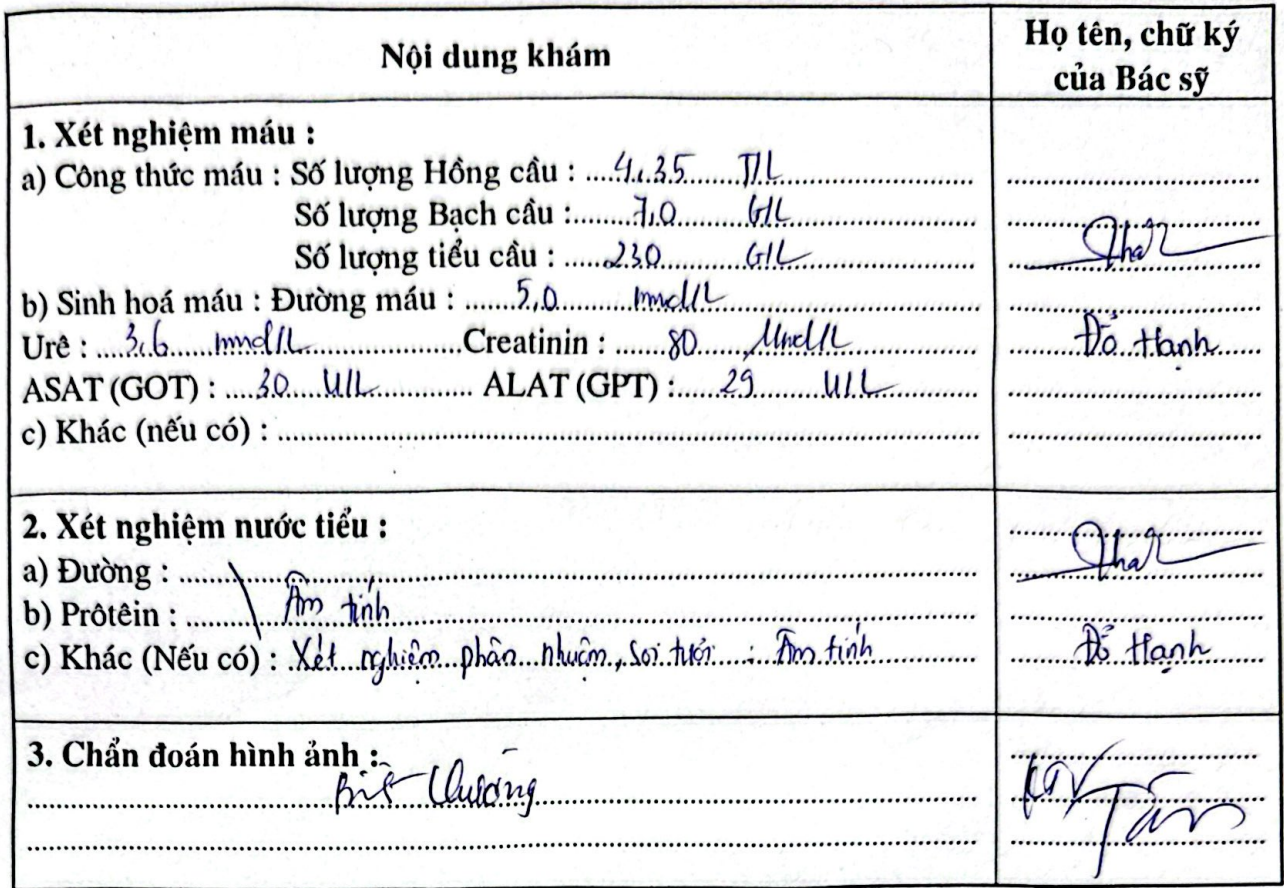 Nội dung khám
Họ tên, chữ ký
của Bác sỹ
1. Xét nghiệm máu :
a) Công thức máu : Số lượng Hồng cầu : 4,35 T/L
Số lượng Bạch cầu : 7,0 G/L
Số lượng tiểu cầu : 230 G/L
b) Sinh hoá máu : Đường máu : 5,0 mmol/L
Urê : 3,6 mmol/L Creatinin : 80 µmol/L
Đỗ Hạnh
ASAT (GOT) : 30 U/L ALAT (GPT) : 29 U/L
c) Khác (nếu có) :
2. Xét nghiệm nước tiểu :
a) Đường :
b) Prôtêin : Âm tính
c) Khác (Nếu có) : Xét nghiệm phân nhuộm, soi tươi : Âm tính
Đỗ Hạnh
3. Chẩn đoán hình ảnh :
Bình thường
Tân